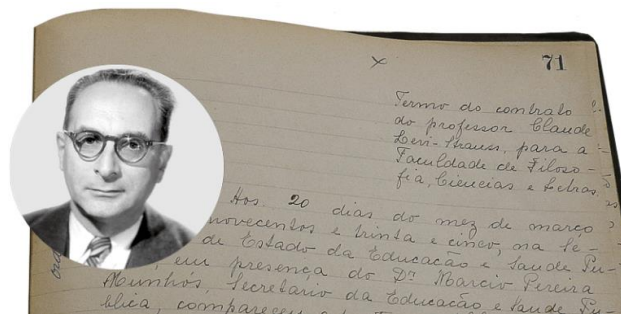 71
Termo do contrato
do professor Claude
Levi-Strauss, para a
Faculdade de Filoso-
fia, Ciencias e Letras.
Aos 20 dias do mez de março
novecentos e trinta e cinco, na Se-
de Estado da Educacão e Saude Pu-
em presença do Dr Marcio Pereira
Munhós, Secretario da Educacão e Saude Pu-
blica, compareceu